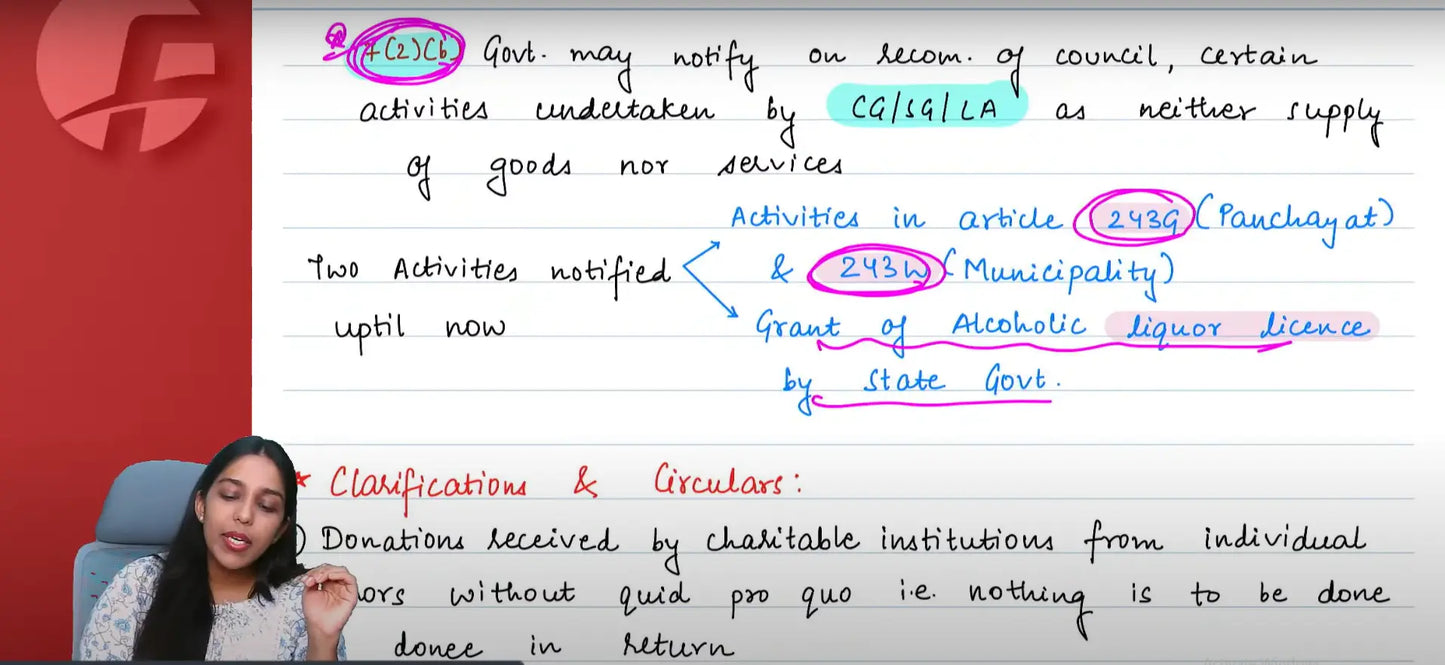 7(2)(b) Govt. may notify on recom. of council, certain
activities undertaken by CG/SG/LA as neither supply
of goods nor services
Activities in article 243G (Panchayat)
Two Activities notified & 243W (Municipality)
uptil now Grant of Alcoholic liquor licence
by State Govt.
* Clarifications & Circulars:
) Donations received by charitable institutions from individual
ors without quid pro quo i.e. nothing is to be done
donee in return